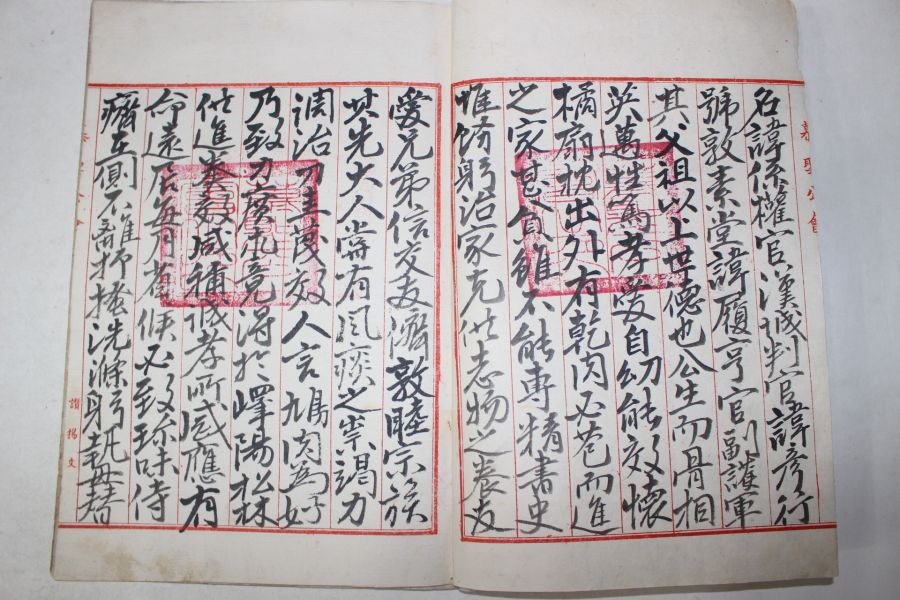 名諱係權官漢城判官諱彦行
號敦素堂諱履亨官副護軍
其父祖以上世德也公生而骨相
英邁性篤孝愛自幼能效懷
橘扇枕出外有乾肉必苞而進
之家甚貧雖不能專精書史
惟飭躬治家克供志物之養友
愛兄弟信交友濟敦睦宗族
其先大人嘗有風痰之祟竭力
調治刀圭蔑效人言鳩肉爲好
乃致力廣求竟得於嶧陽松林
供進奏效咸稱誠孝所感應有
命遠居每月省候必致珍味侍
癠在側不離抑搔洗滌躬執
讚揚文